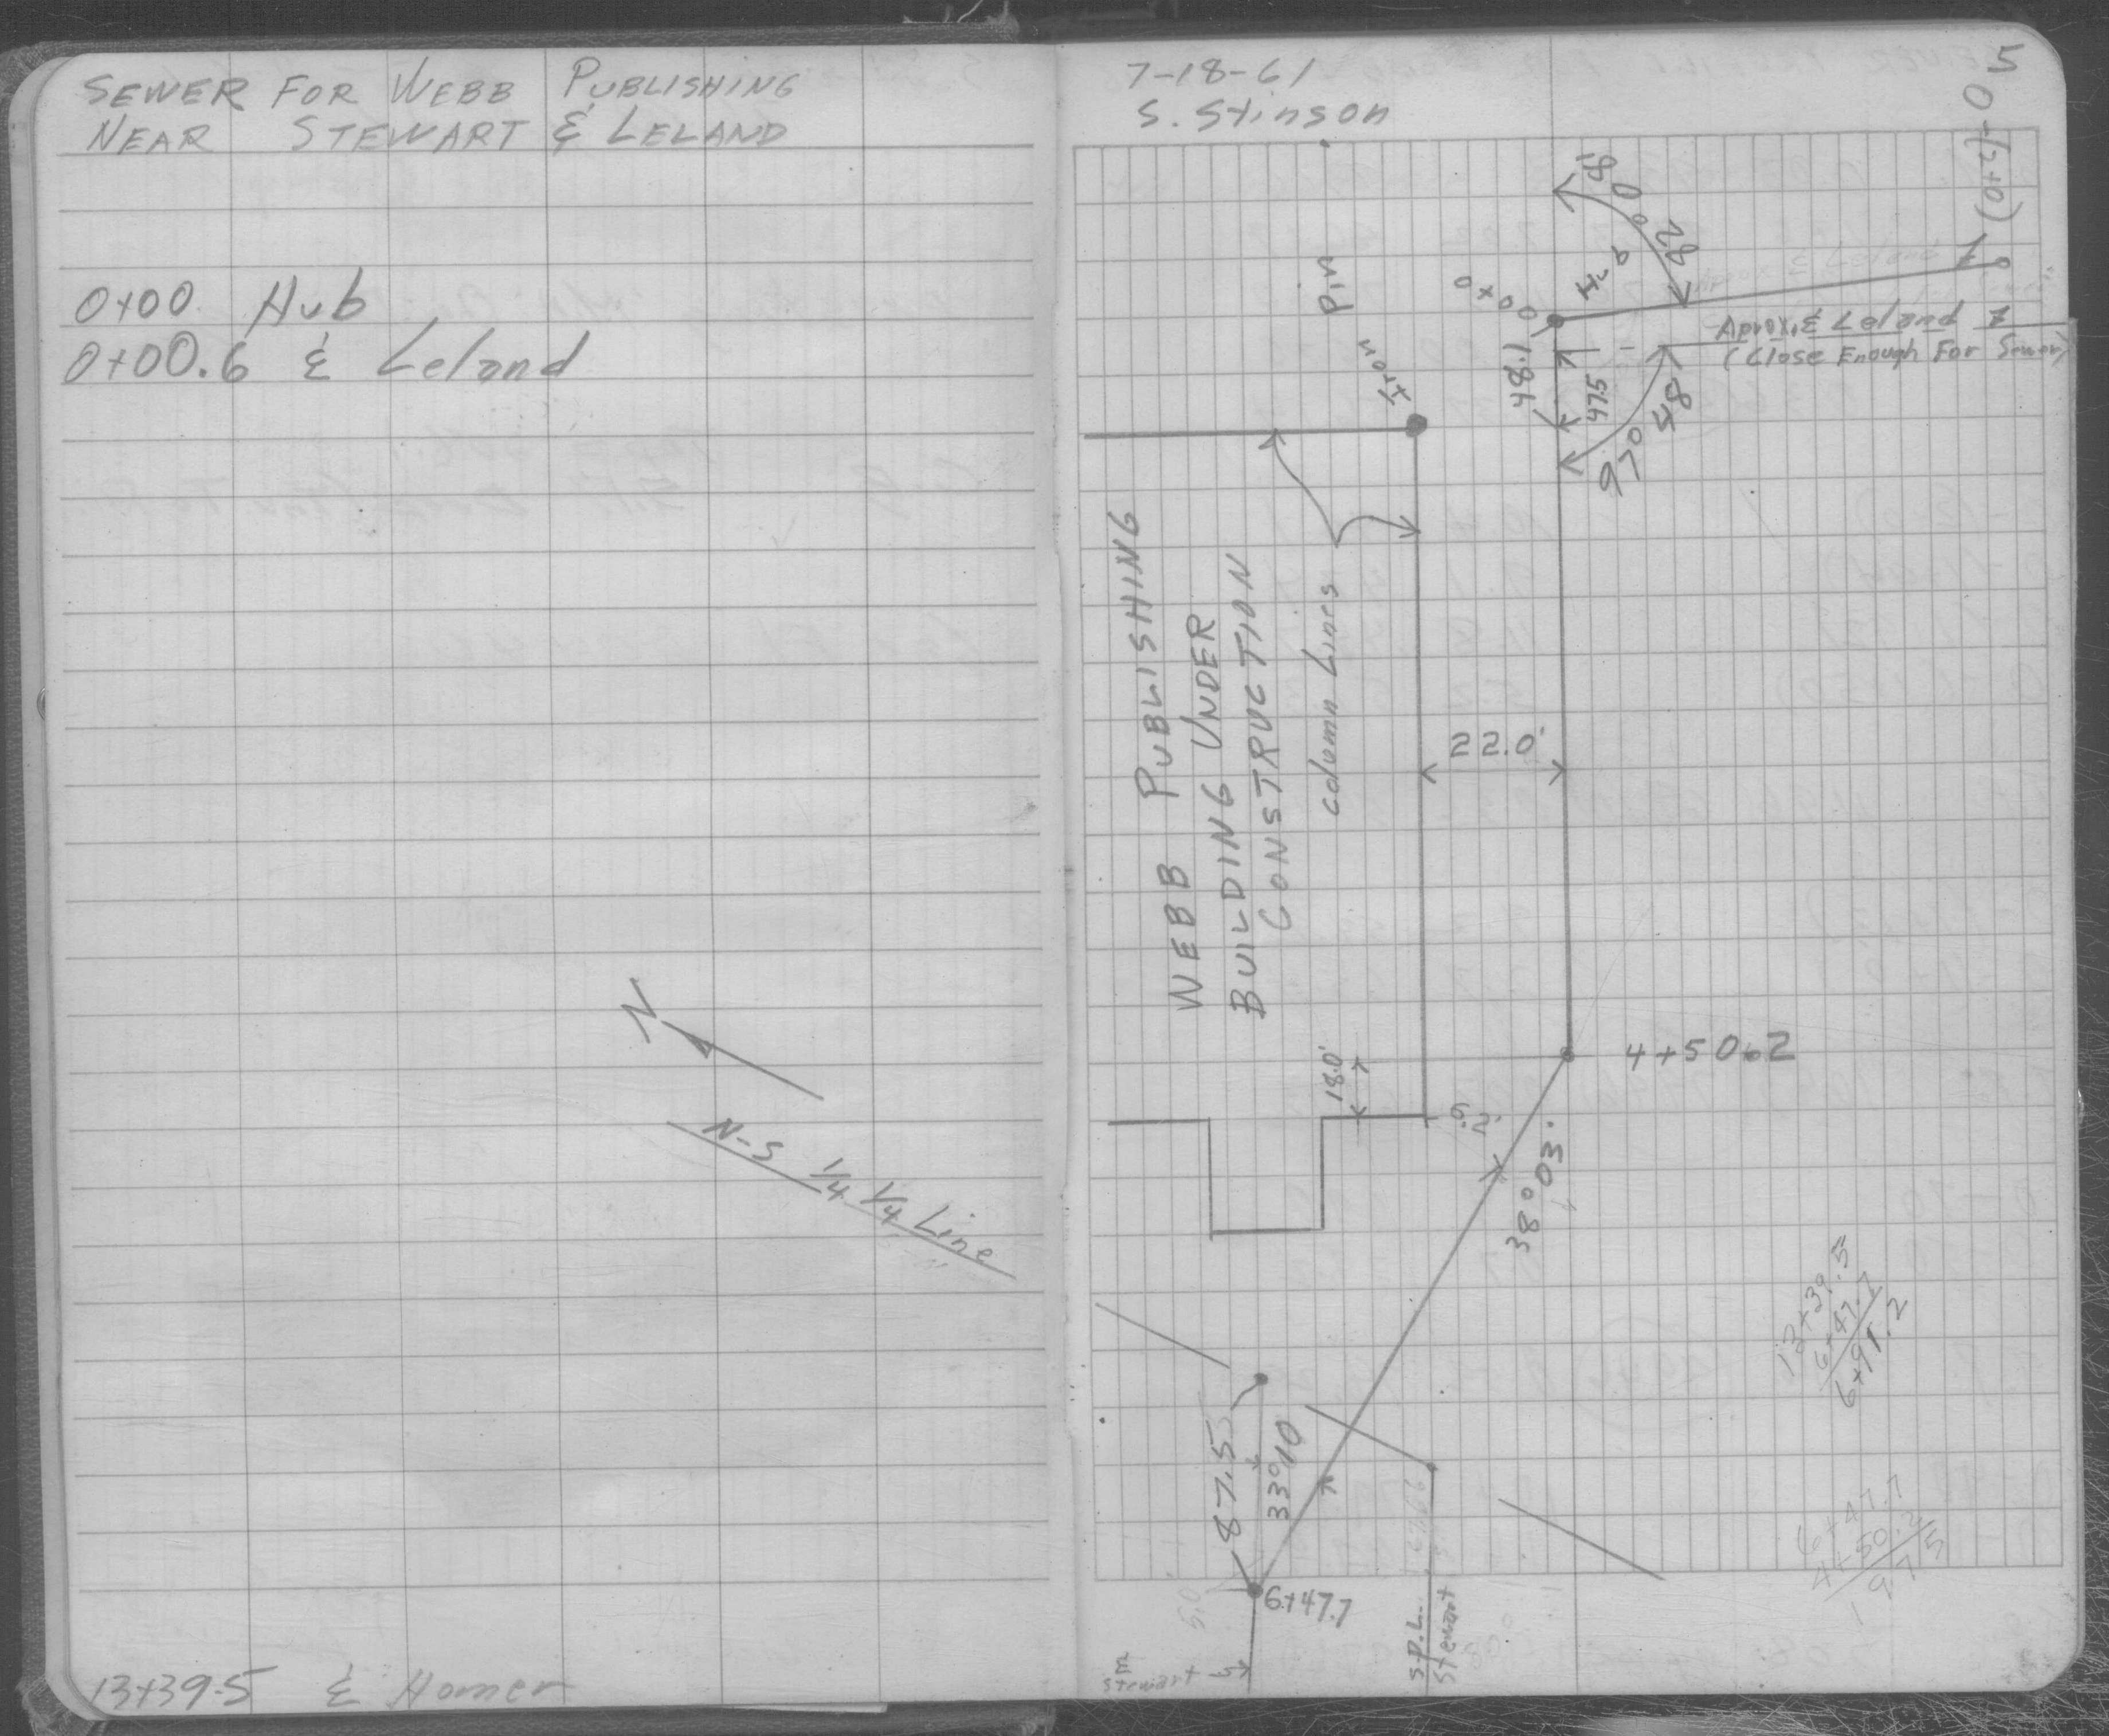 SEWER FOR WEBB PUBLISHING
NEAR STEWART & LELAND
0+00 Hub
0+00.6 ℄ Leland
N
N-S 1/4 1/4 Line
13+39.5 ℄ Homer
7-18-61
S. Stinson
5
(0+2)-0
Hub
0+00
82°00'18"
Aprox. ℄ Leland
(Close Enough For Sewer)
48.1
47.5
97° 48'
Iron Pin
WEBB PUBLISHING
BUILDING UNDER
CONSTRUCTION
column Lines
22.0'
18.0'
9.2'
4+50.2
38°03'
87.5
33°10
6+47.7
5.0
Stewart
S.P.L.
Stewart
13+39.5
6+47.7
6+91.2
6+47.7
4+50.2
197.5